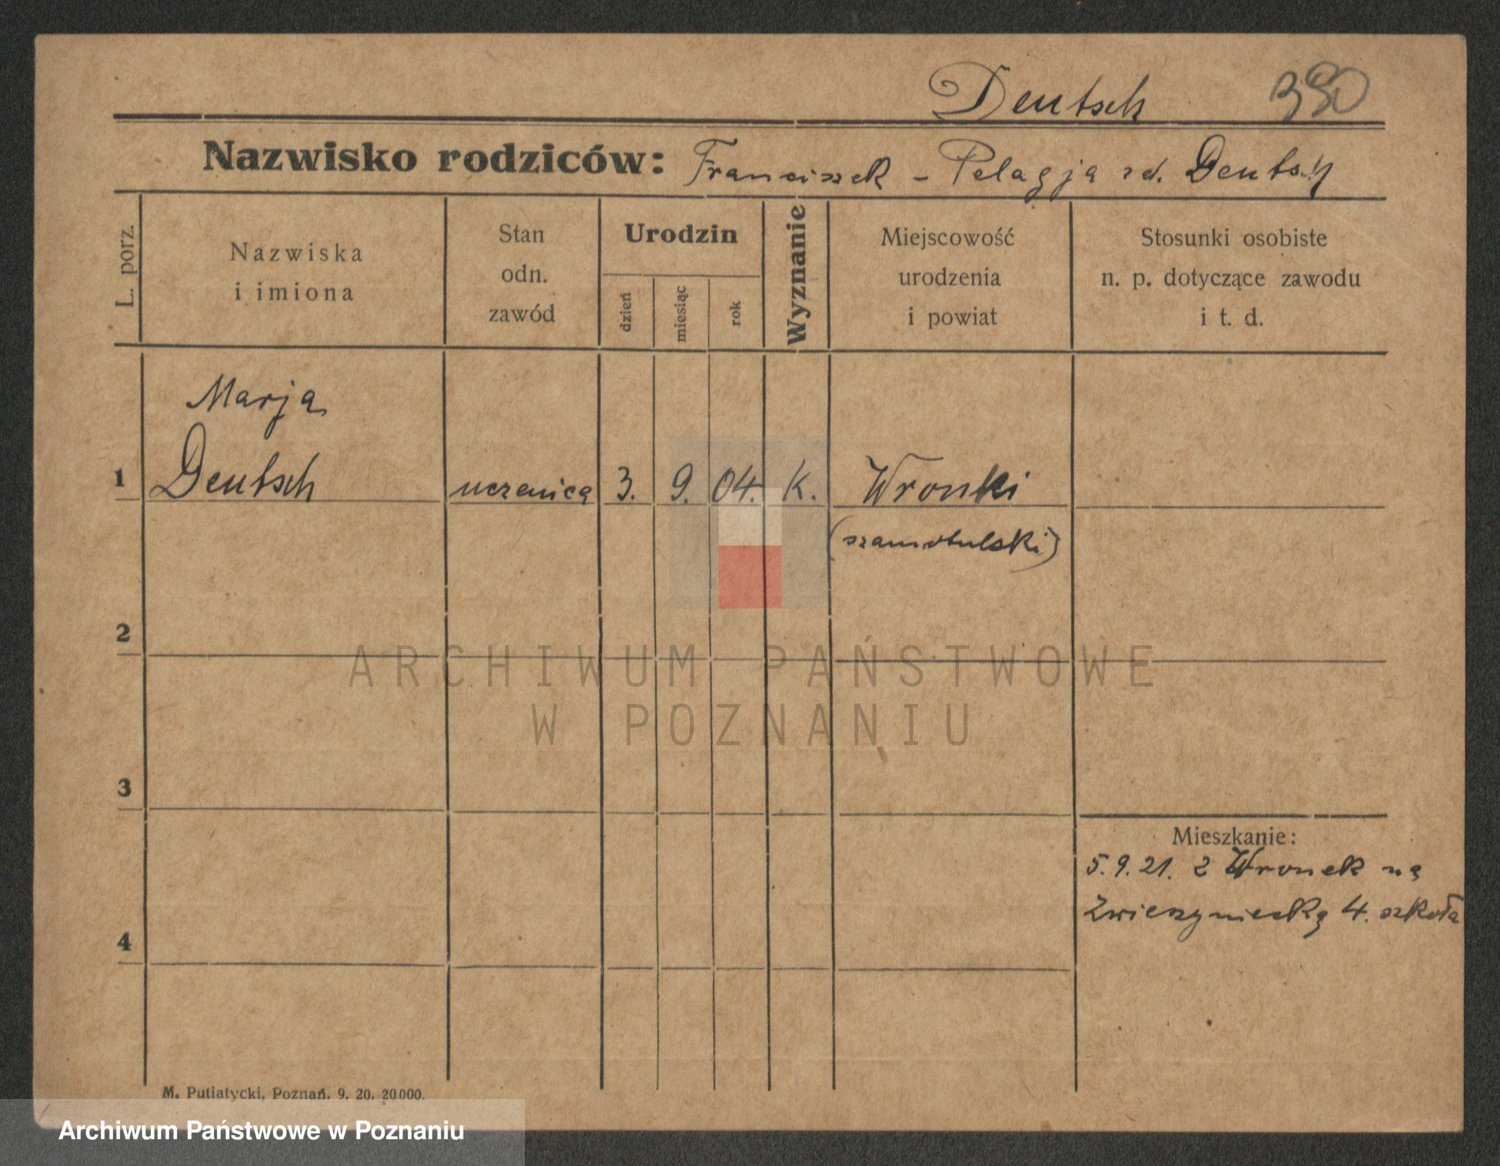 Deutsch 390
Nazwisko rodziców: Franciszek - Pelagja zd. Deutsch
L. porz.
Nazwiska
i imiona
Stan
odn.
zawód
Urodzin
dzień
miesiąc
rok
Wyznanie
Miejscowość
urodzenia
i powiat
Stosunki osobiste
n. p. dotyczące zawodu
i t. d.
Marja
1 Deutsch uczenica 3. 9. 04. K. Wronki
(szamotulski)
2
ARCHIWUM PAŃSTWOWE
W POZNANIU
3
Mieszkanie:
5.9.21. z Wronek na
Zwierzyniecką 4. szkoła
4
M. Putiatycki, Poznań. 9. 20. 20000.
Archiwum Państwowe w Poznaniu